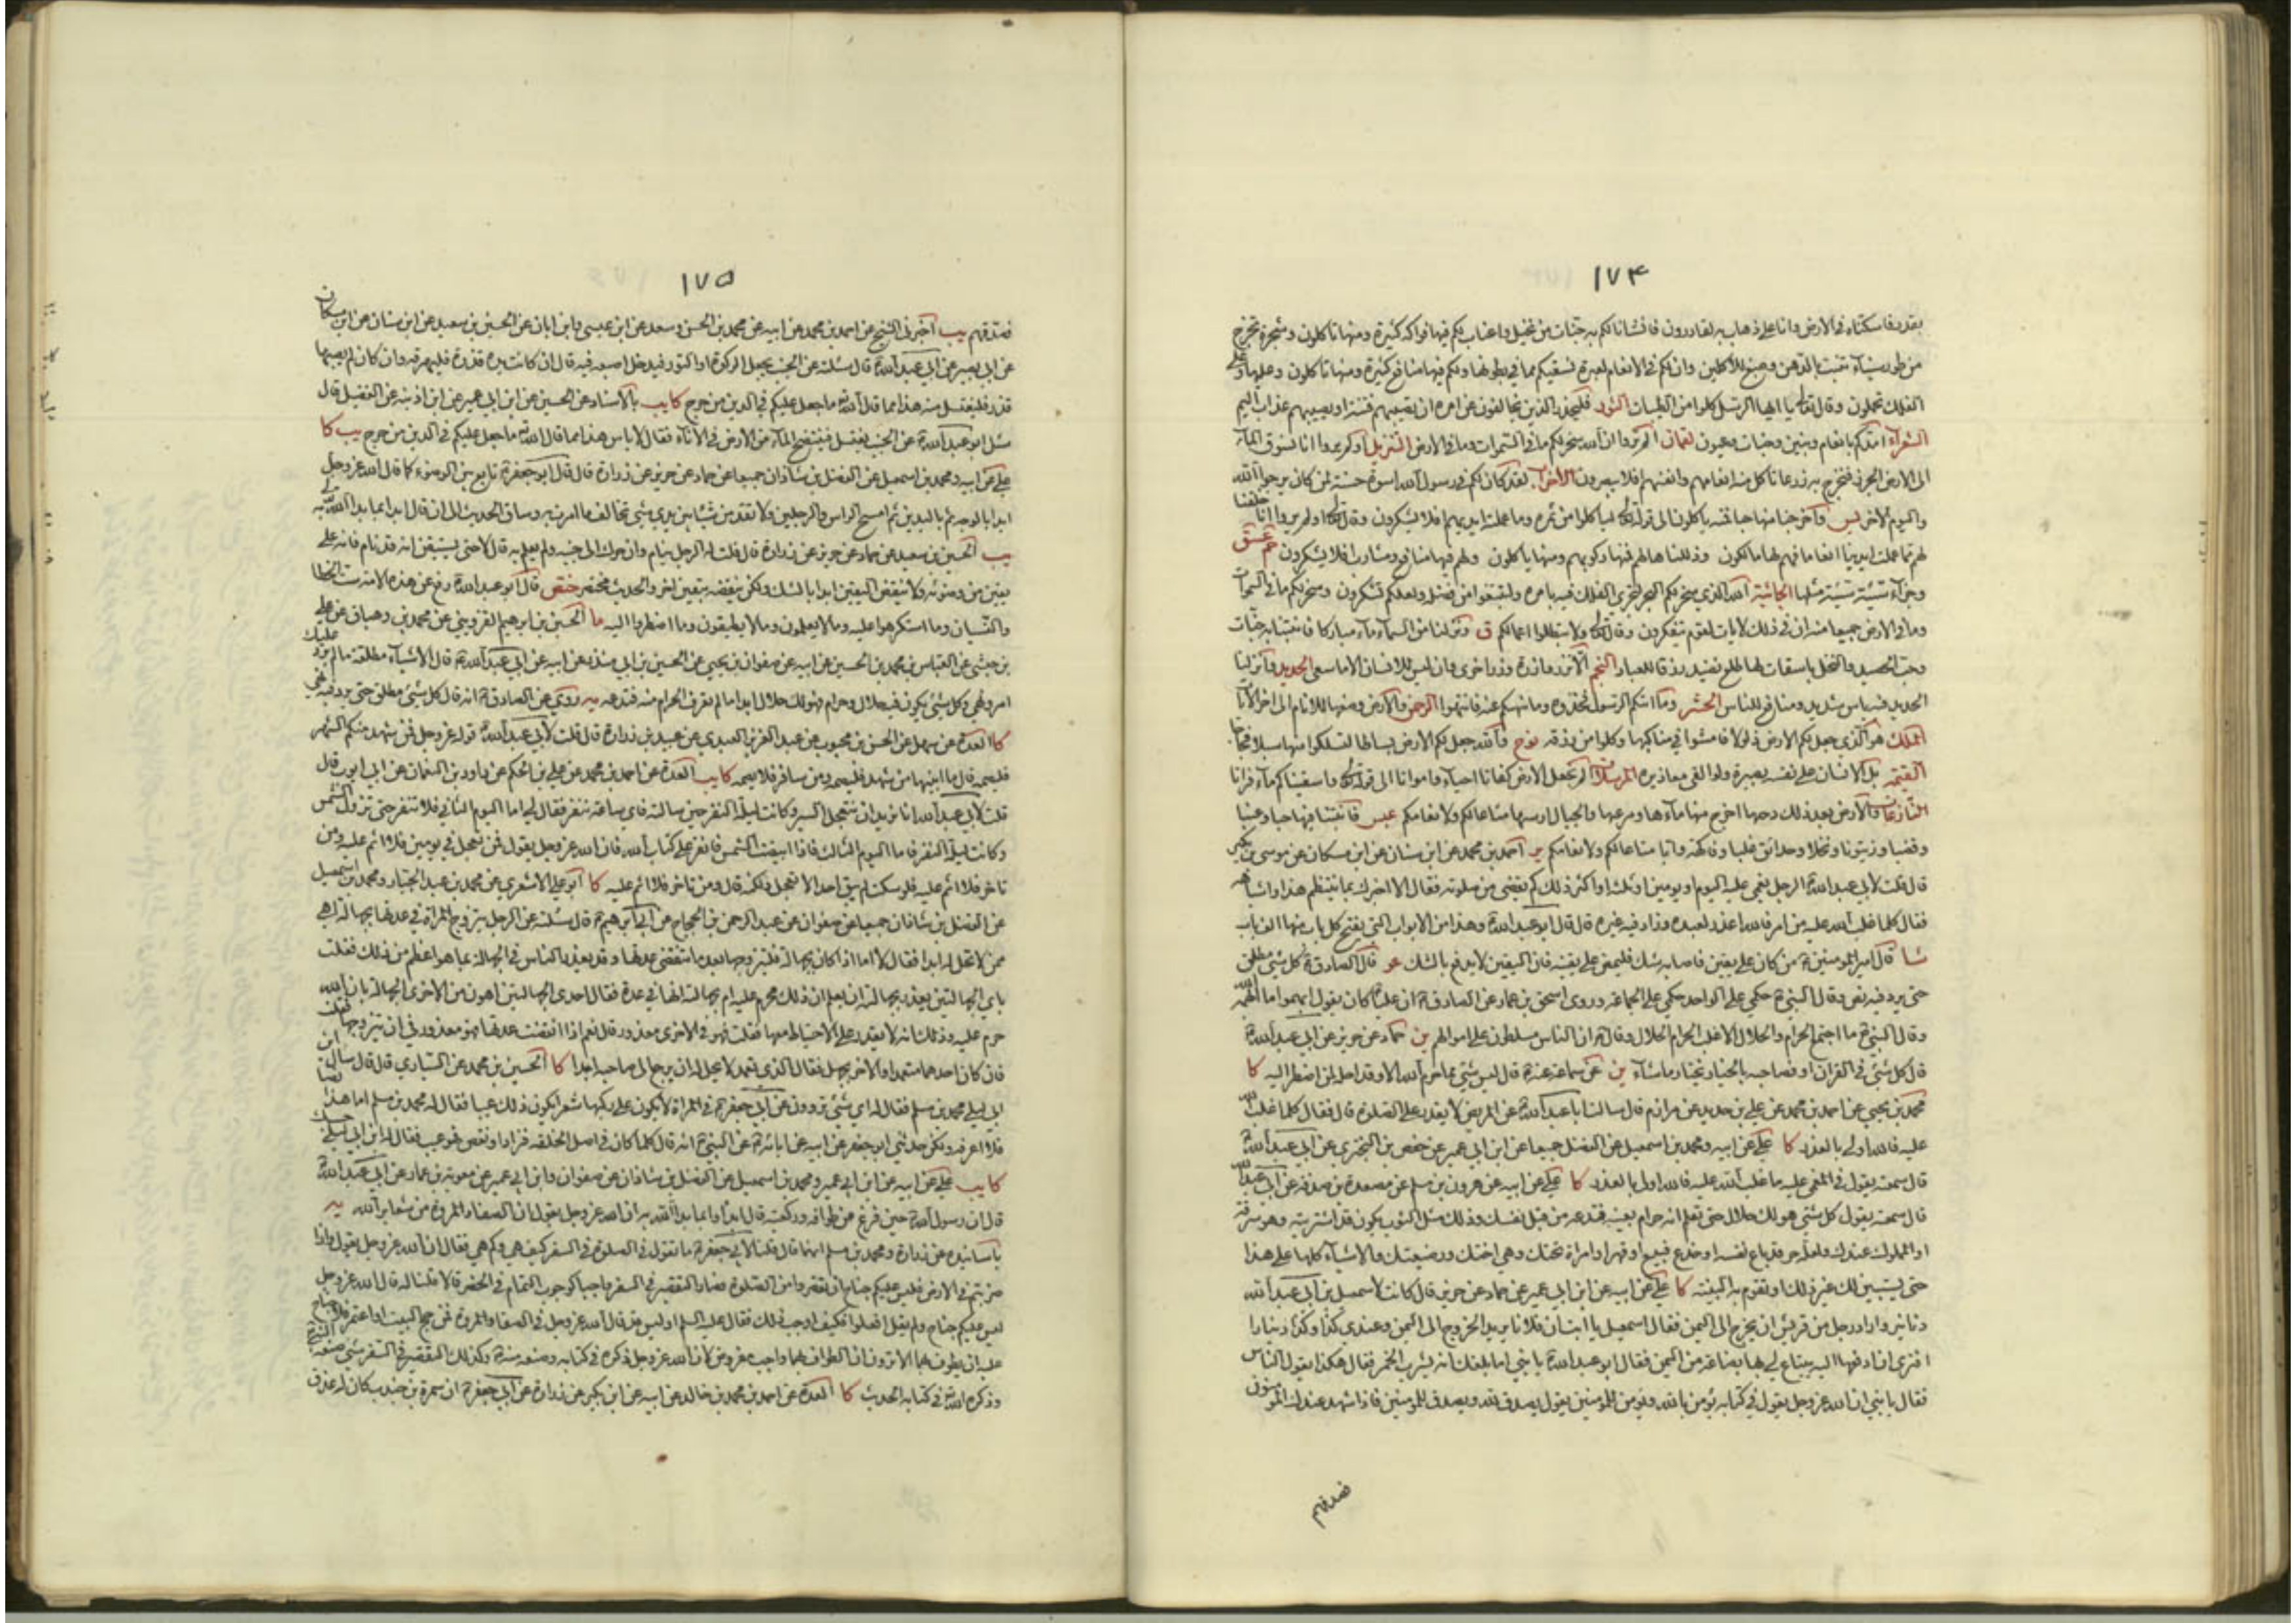 ١٧٤
بقدر فاسكناه في الارض وانا على ذهاب به لقادرون فانشانا لكم به جنات من نخيل واعناب لكم فيها فواكه كثيرة ومنها تاكلون وشجرة تخرج
من طور سيناء تنبت بالدهن وصبغ للآكلين وان لكم في الانعام لعبرة نسقيكم مما في بطونها ولكم فيها منافع كثيرة ومنها تاكلون وعليها وعلى
الفلك تحملون وقال تعالى يا ايها الرسل كلوا من الطيبات النور فليحذر الذين يخالفون عن امره ان تصيبهم فتنة او يصيبهم عذاب اليم
الشعراء امدكم بانعام وبنين وجنات وعيون لقمان الم تروا ان الله سخر لكم ما في السموات وما في الارض التنزيل اولم يروا انا نسوق الماء
الى الارض الجرز فنخرج به زرعا تاكل منه انعامهم وانفسهم افلا يبصرون الاحزاب لقد كان لكم في رسول الله اسوة حسنة لمن كان يرجوا الله
واليوم الآخر يس واخرجنا منها حبا فمنه ياكلون الى قوله تعالى لياكلوا من ثمره وما عملت ايديهم افلا يشكرون وقال تعالى اولم يروا انا خلقنا
لهم مما عملت ايدينا انعاما فهم لها مالكون وذللناها لهم فمنها ركوبهم ومنها ياكلون ولهم فيها منافع ومشارب افلا يشكرون حم عسق
وجزاء سيئة سيئة مثلها الجاثية الله الذي سخر لكم البحر لتجري الفلك فيه بامره ولتبتغوا من فضله ولعلكم تشكرون وسخر لكم ما في السموات
وما في الارض جميعا منه ان في ذلك لايات لقوم يتفكرون وقال تعالى ولا تبطلوا اعمالكم ق ونزلنا من السماء ماء مباركا فانبتنا به جنات
وحب الحصيد والنخل باسقات لها طلع نضيد رزقا للعباد النجم الا تزر وازرة وزر اخرى وان ليس للانسان الا ما سعى الحديد وانزلنا
الحديد فيه باس شديد ومنافع للناس الحشر وما اتيكم الرسول فخذوه وما نهيكم عنه فانتهوا الرحمن والارض وضعها للانام الى اخر الآيات
الملك هو الذي جعل لكم الارض ذلولا فامشوا في مناكبها وكلوا من رزقه نوح والله جعل لكم الارض بساطا لتسلكوا منها سبلا فجاجا
القيمة بل الانسان على نفسه بصيرة ولو القى معاذيره المرسلات الم نجعل الارض كفاتا احياء وامواتا الى قوله تعالى واسقيناكم ماء فراتا
النازعات والارض بعد ذلك دحيها اخرج منها ماءها ومرعيها والجبال ارسيها متاعا لكم ولانعامكم عبس فانبتنا فيها حبا وعنبا
وقضبا وزيتونا ونخلا وحدائق غلبا وفاكهة وابا متاعا لكم ولانعامكم ير احمد بن محمد عن ابن سنان عن ابن مسكان عن موسى بن بكير
قال قلت لابي عبد الله الرجل يغمى عليه اليوم او يومين او ثلثة او اكثر ذلك كم يقضي من صلوته فقال الا اخبرك بما ينتظم هذا واشباهه
فقال كلما غلب الله عليه من امر فالله اعذر لعبده وزاد فيه غيره قال قال ابو عبد الله وهذا من الابواب التي يفتح كل باب منها الف باب
شا قال امير المومنين من كان على يقين فاصابه شك فليمض على يقينه فان اليقين لا يدفع بالشك غو قال الصادق كل شئ مطلق
حتى يرد فيه نص وقال النبي حكمي على الواحد حكمي على الجماعة وروى اسحق بن عمار عن الصادق ان عليا كان يقول ابهموا ما ابهمه الله
وقال النبي ما اجتمع الحرام والحلال الا غلب الحرام الحلال وقال ان الناس مسلطون على اموالهم ين حماد عن حريز عن ابي عبد الله
قال كل شئ في القران او فصاحبه بالخيار يختار ما شاء ين عن سماعة عنه قال ليس شئ مما حرم الله الا وقد احله لمن اضطر اليه كا
محمد بن يحيى عن احمد بن محمد عن علي بن حديد عن مرازم قال سالت ابا عبد الله عن المريض لا يقدر على الصلوة قال فقال كلما غلب الله
عليه فالله اولى بالعذر كا علي عن ابيه ومحمد بن اسمعيل عن الفضل جميعا عن ابن ابي عمير عن حفص بن البختري عن ابي عبد الله
قال سمعته يقول في المغمى عليه ما غلب الله عليه فالله اولى بالعذر كا علي عن ابيه عن هرون بن مسلم عن مسعدة بن صدقة عن ابي عبد الله
قال سمعته يقول كل شئ هو لك حلال حتى تعلم انه حرام بعينه فتدعه من قبل نفسك وذلك مثل الثوب يكون قد اشتريته وهو سرقة
او المملوك عندك ولعله حر قد باع نفسه او خدع فبيع او قهر او امراة تحتك وهي اختك او رضيعتك والاشياء كلها على هذا
حتى يستبين لك غير ذلك او تقوم به البينة كا علي عن ابيه عن ابن ابي عمير عن حماد عن حريز قال كانت لاسمعيل بن ابي عبد الله
دنانير واراد رجل من قريش ان يخرج الى اليمن فقال اسمعيل يا ابت ان فلانا يريد الخروج الى اليمن وعندي كذا وكذا دينارا
افترى ان ادفعها اليه يبتاع لي بها بضاعة من اليمن فقال ابو عبد الله يا بني اما بلغك انه يشرب الخمر فقال هكذا يقول الناس
فقال يا بني ان الله عز وجل يقول في كتابه يؤمن بالله ويؤمن للمومنين يقول يصدق لله ويصدق للمومنين فاذا شهد عندك المومنون
فصدقهم
١٧٥
فصدقهم يب اخبرني الشيخ عن احمد بن محمد عن ابيه عن محمد بن الحسن وسعد عن ابن عيسى وابن ابان عن الحسين بن سعيد عن ابن سنان عن ابن مسكان
عن ابي بصير عن ابي عبد الله قال سئلته عن الجنب يجعل الركوة او التور فيدخل اصبعه فيه قال ان كانت يده قذرة فليهرقه وان كان لم يصبها
قذر فليغتسل منه هذا مما قال الله ما جعل عليكم في الدين من حرج كا يب بالاسناد عن الحسين عن ابن ابي عمير عن ابن اذينة عن الفضيل قال
سئل ابو عبد الله عن الجنب يغتسل فينتضح الماء من الارض في الاناء فقال لا باس هذا مما قال الله ما جعل عليكم في الدين من حرج يب كا
علي عن ابيه ومحمد بن اسمعيل عن الفضل بن شاذان جميعا عن حماد عن حريز عن زرارة قال قال ابو جعفر تابع بين الوضوء كما قال الله عز وجل
ابدا بالوجه ثم باليدين ثم امسح الراس والرجلين ولا تقدمن شيئا بين يدي شئ تخالف ما امرت به وساق الحديث الى ان قال ابدا بما بدا الله به
يب الحسين بن سعيد عن حماد عن حريز عن زرارة قال قلت له الرجل ينام وان حرك الى جنبه ولم يعلم به قال لا حتى يستيقن انه قد نام فانه على
يقين من وضوئه ولا ينقض اليقين ابدا بالشك ولكن ينقضه بيقين اخر والحديث مختصر ختص قال ابو عبد الله رفع عن هذه الامة ست الخطا
والنسيان وما استكرهوا عليه وما لا يعلمون وما لا يطيقون وما اضطروا اليه ما الحسين بن ابرهيم القزويني عن محمد بن وهبان عن علي
بن حبشي عن العباس بن محمد بن الحسين عن ابيه عن صفوان بن يحيى عن الحسين بن ابي غندر عن ابيه عن ابي عبد الله قال الاشياء مطلقة ما لم يرد عليك
امر ونهي وكل شئ يكون فيه حلال وحرام فهو لك حلال ابدا ما لم تعرف الحرام منه فتدعه يه روي عن الصادق انه قال كل شئ مطلق حتى يرد فيه نهي
كا العدة عن سهل عن الحسن بن محبوب عن عبد العزيز العبدي عن عبيد بن زرارة قال قلت لابي عبد الله قوله عز وجل فمن شهد منكم الشهر
فليصمه قال ما ابينها من شهد فليصمه ومن سافر فلا يصمه كا يب العدة عن احمد بن محمد عن علي بن الحكم عن داود بن النعمان عن ابي ايوب قال
قلت لابي عبد الله انا نريد ان نتعجل السير وكانت ليلة النفر حين سالته فاي ساعة ننفر فقال لي اما اليوم الثاني فلا تنفر حتى تزول الشمس
وكانت ليلة النفر فاما اليوم الثالث فاذا ابيضت الشمس فانفر على كتاب الله فان الله عز وجل يقول فمن تعجل في يومين فلا اثم عليه ومن
تاخر فلا اثم عليه فلو سكت لم يبق احد الا تعجل ولكنه قال ومن تاخر فلا اثم عليه كا ابو علي الاشعري عن محمد بن عبد الجبار ومحمد بن اسمعيل
عن الفضل بن شاذان جميعا عن صفوان عن عبد الرحمن بن الحجاج عن ابي ابرهيم قال سئلته عن الرجل يتزوج المراة في عدتها بجهالة اهي
ممن لا تحل له ابدا فقال لا اما اذا كان بجهالة فليتزوجها بعد ما تنقضي عدتها وقد يعذر الناس في الجهالة بما هو اعظم من ذلك فقلت
باي الجهالتين يعذر بجهالته ان يعلم ان ذلك محرم عليه ام بجهالته انها في عدة فقال احدى الجهالتين اهون من الاخرى الجهالة بان الله
حرم عليه وذلك انه لا يقدر على الاحتياط معها فقلت فهو في الاخرى معذور قال نعم اذا انقضت عدتها فهو معذور في ان يتزوجها فقلت
فان كان احدهما متعمدا والآخر بجهل فقال الذي تعمد لا يحل له ان يرجع الى صاحبه ابدا كا الحسين بن محمد عن السياري قال قال سال ابن
ابي ليلى محمد بن مسلم فقال له اي شئ تروون عن ابي جعفر في المراة لا يكون على ركبها شعر ايكون ذلك عيبا فقال له محمد بن مسلم اما هذا نصا
فلا اعرفه ولكن حدثني ابو جعفر عن ابيه عن ابائه عن النبي انه قال كلما كان في اصل الخلقة فزاد او نقص فهو عيب فقال له ابن ابي ليلى حسبك
كا يب علي عن ابيه عن ابن ابي عمير ومحمد بن اسمعيل عن الفضل بن شاذان عن صفوان وابن ابي عمير عن معوية بن عمار عن ابي عبد الله
قال ان رسول الله حين فرغ من طوافه وركعتيه قال ابدا وا بما بدا الله به ان الله عز وجل يقول ان الصفا والمروة من شعاير الله يه
باسانيده عن زرارة ومحمد بن مسلم انهما قال قلنا لابي جعفر ما تقول في الصلوة في السفر كيف هي وكم هي فقال ان الله عز وجل يقول واذا
ضربتم في الارض فليس عليكم جناح ان تقصروا من الصلوة فصار التقصير في السفر واجبا كوجوب التمام في الحضر قالا قلنا له قال الله عز وجل
ليس عليكم جناح ولم يقل افعلوا فكيف اوجب ذلك فقال عليه السلم اوليس قد قال الله عز وجل في الصفا والمروة فمن حج البيت او اعتمر فلا جناح
عليه ان يطوف بهما الا ترون ان الطواف بهما واجب مفروض لان الله عز وجل ذكره في كتابه وصنعه نبيه وكذلك التقصير في السفر شئ صنعه النبي
وذكره الله في كتابه الحديث كا العدة عن احمد بن محمد بن خالد عن ابيه عن ابن بكير عن زرارة عن ابي جعفر ان سمرة بن جندب كان له عذق